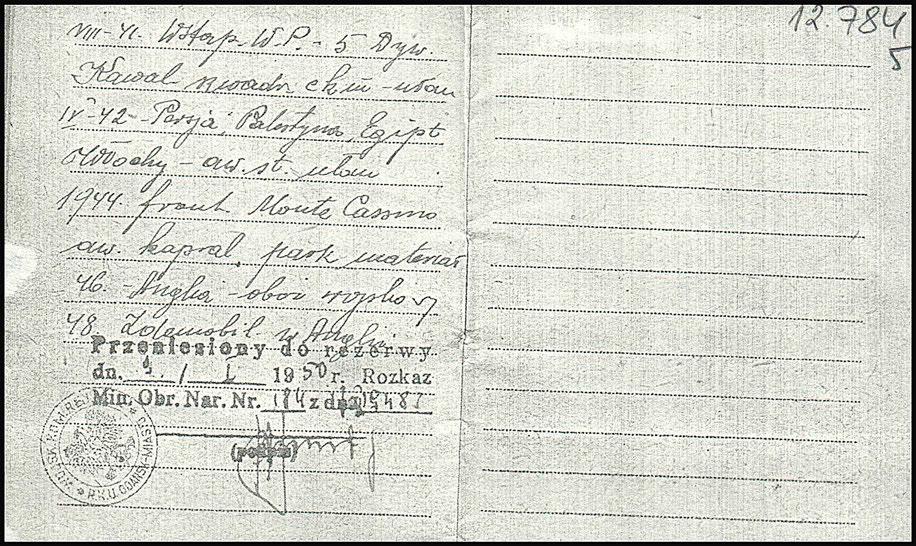 12.784
5
VIII-41. Wstąp. W.P. - 5 Dyw.
Kawal - ułan
IV-42 - Persja, Palestyna, Egipt
Włochy - aw. st. ułan
1944. front Monte Cassino
aw. kapral, park materiał
46. - Anglia - obóz wojskowy
48. Zdemobil. w Anglii
Przeniesiony do rezerwy
dn. 1 / I 1950 r. Rozkaz
Min. Obr. Nar. Nr. 184 z dn.
(podpis)
R.K.U. GDAŃSK-MIASTO